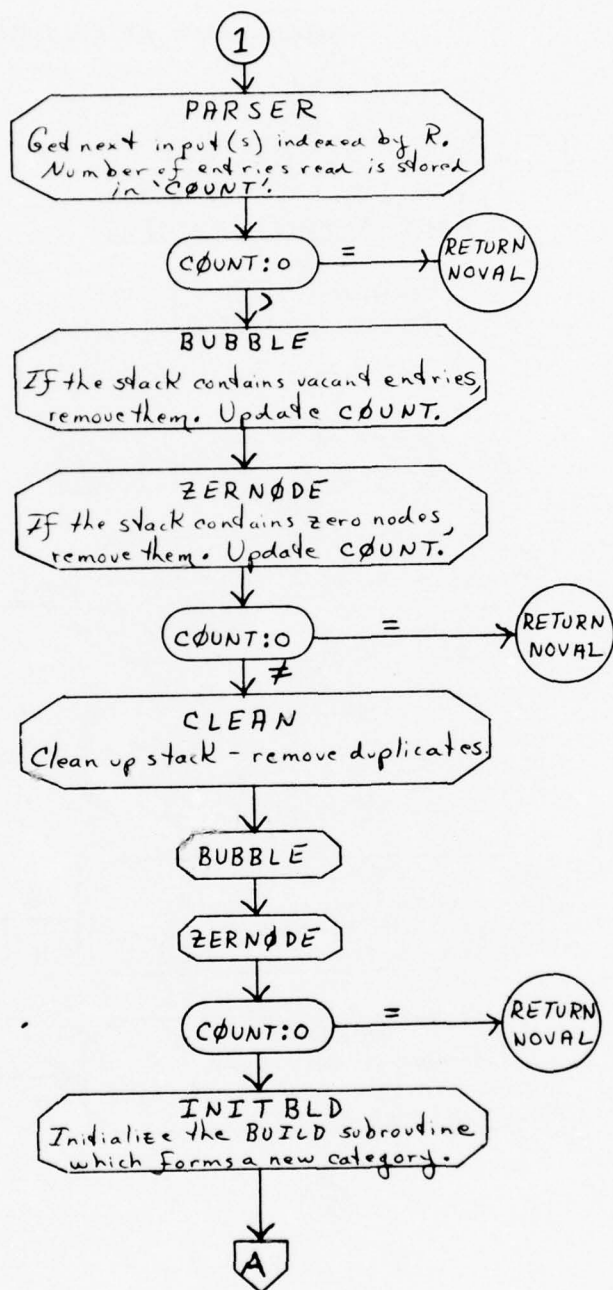 1
PARSER
Get next input(s) indexed by R.
Number of entries read is stored
in 'CØUNT'.
CØUNT:0 = RETURN
NOVAL
>
BUBBLE
If the stack contains vacant entries,
remove them. Update CØUNT.
ZERNØDE
If the stack contains zero nodes,
remove them. Update CØUNT.
CØUNT:0 = RETURN
NOVAL
≠
CLEAN
Clean up stack - remove duplicates.
BUBBLE
ZERNØDE
CØUNT:0 = RETURN
NOVAL
INITBLD
Initialize the BUILD subroutine
which forms a new category.
A